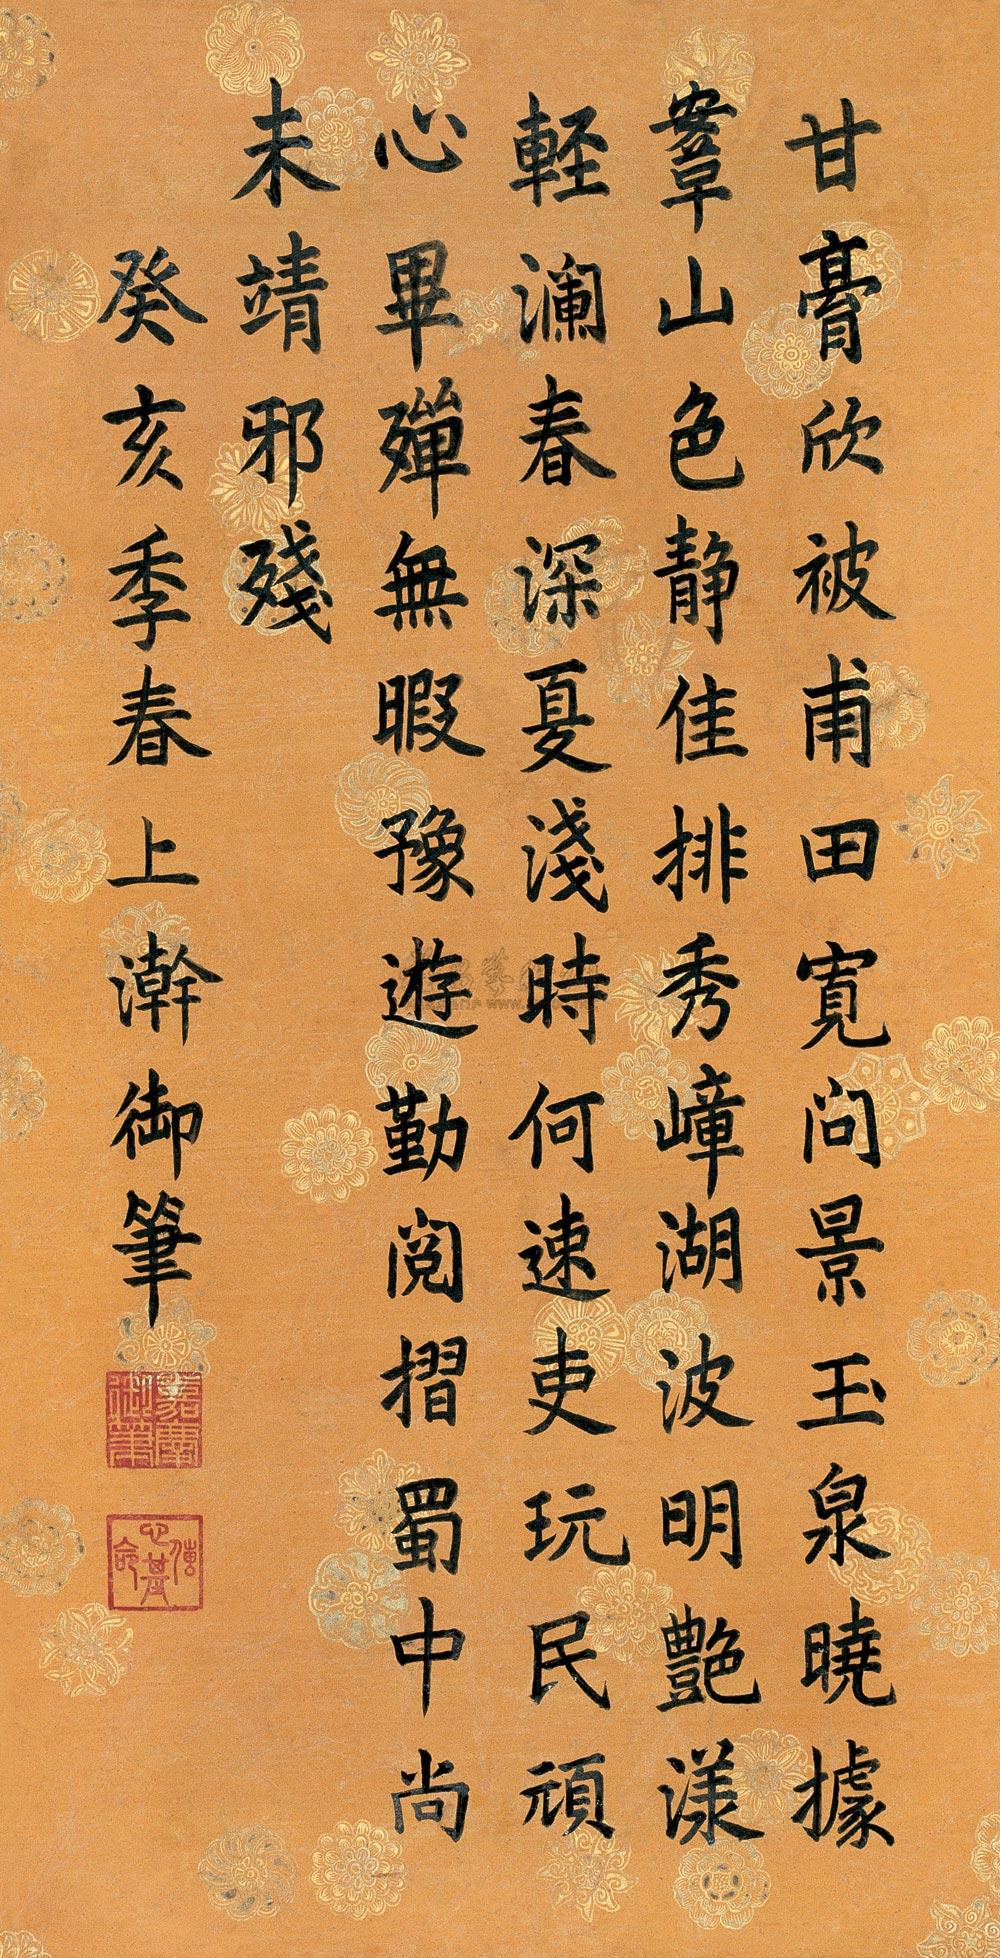 甘膏欣被甫田寬問景玉泉曉據
鞌山色靜佳排秀嶂湖波明艷漾
輕瀾春深夏淺時何速吏玩民頑
心畢殫無暇豫遊勤閱摺蜀中尚
未靖邪殘
癸亥季春上澣御筆
嘉慶
御筆